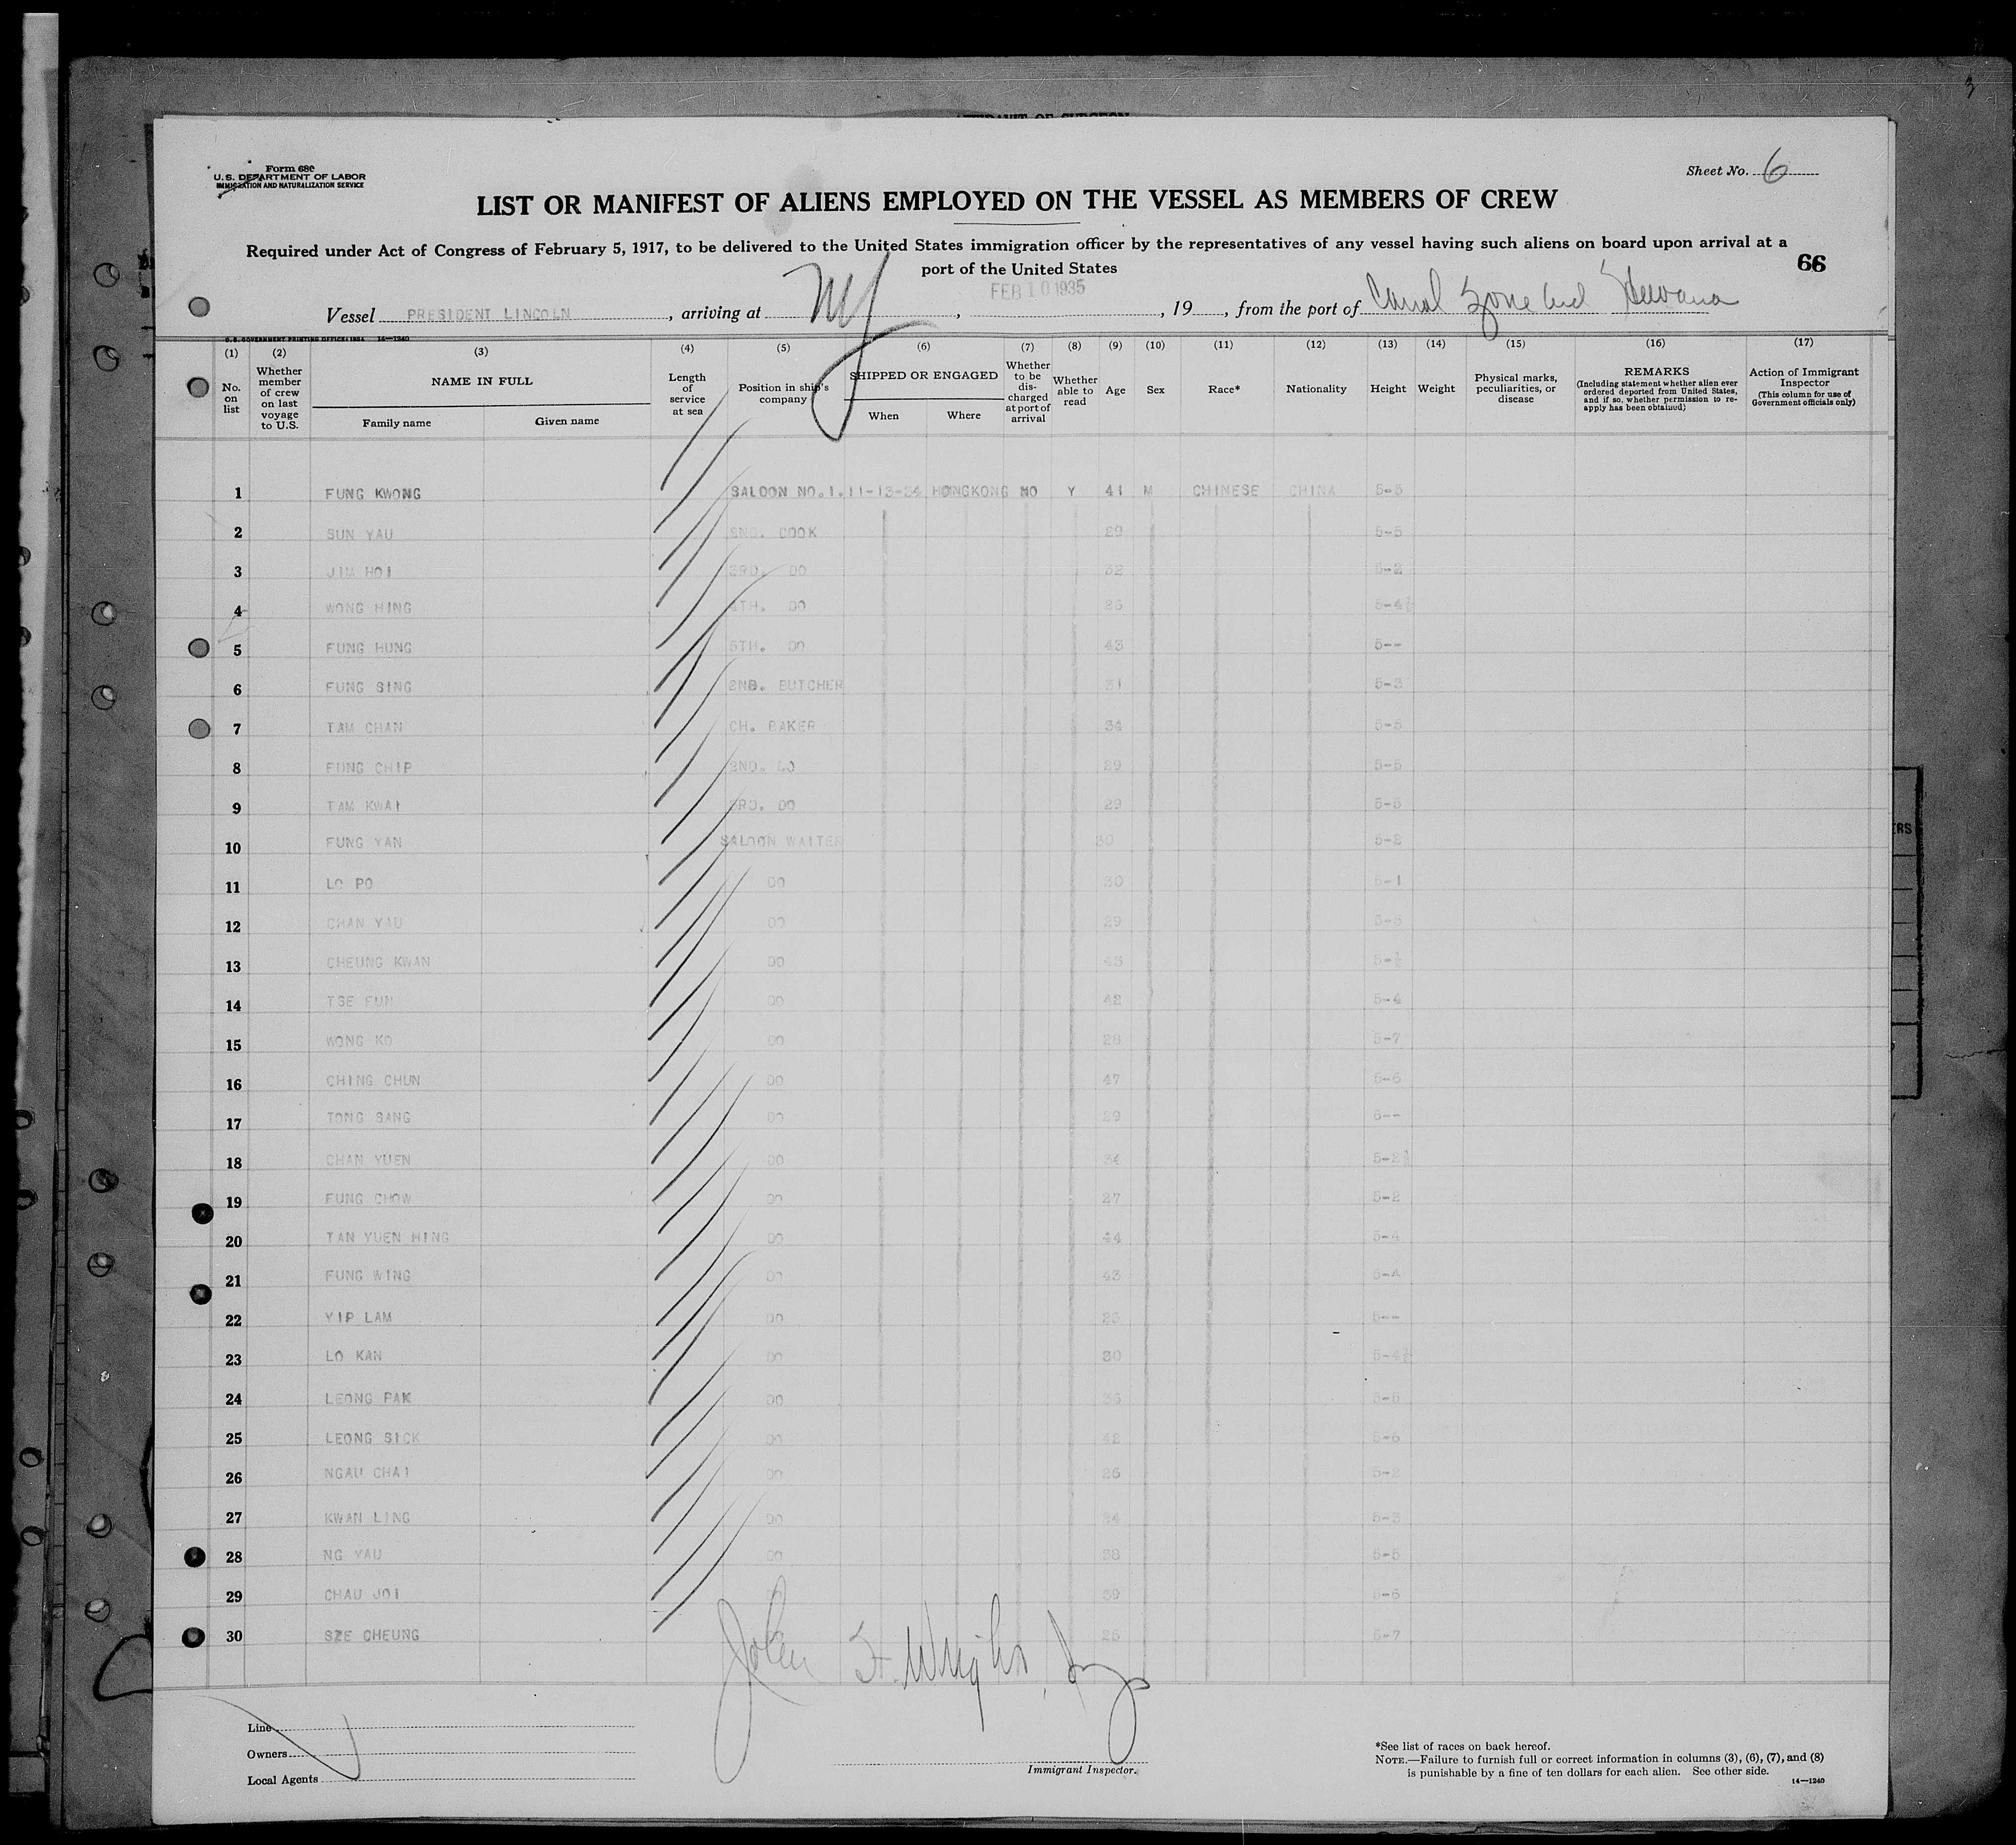 AFFIDAVIT OF SURGEON
Form 680
U. S. DEPARTMENT OF LABOR
IMMIGRATION AND NATURALIZATION SERVICE
Sheet No. 6
LIST OR MANIFEST OF ALIENS EMPLOYED ON THE VESSEL AS MEMBERS OF CREW
Required under Act of Congress of February 5, 1917, to be delivered to the United States immigration officer by the representatives of any vessel having such aliens on board upon arrival at a
port of the United States
66
FEB 10 1935
Vessel PRESIDENT LINCOLN, arriving at NY, , 19 , from the port of Canal Zone and Havana
U.S. GOVERNMENT PRINTING OFFICE: 1934 14—1240
(1) (2) (3) (4) (5) (6) (7) (8) (9) (10) (11) (12) (13) (14) (15) (16) (17)
No. on list
Whether member of crew on last voyage to U.S.
NAME IN FULL
Family name
Given name
Length of service at sea
Position in ship's company
SHIPPED OR ENGAGED
When
Where
Whether to be discharged at port of arrival
Whether able to read
Age
Sex
Race*
Nationality
Height
Weight
Physical marks, peculiarities, or disease
REMARKS
(Including statement whether alien ever ordered deported from United States, and if so, whether permission to reapply has been obtained)
Action of Immigrant Inspector
(This column for use of Government officials only)
1 FUNG KWONG SALOON NO.1. 11-13-34 HONGKONG NO Y 41 M CHINESE CHINA 5-5
2 SUN YAU 2ND. COOK 29 5-5
3 JIM HOI 3RD. DO 32 5-2
4 WONG HING 4TH. DO 26 5-4½
5 FUNG HUNG 5TH. DO 43 5--
6 FUNG SING 2ND. BUTCHER 31 5-3
7 TAM CHAN CH. BAKER 34 5-5
8 FUNG CHIP 2ND. DO 29 5-5
9 TAM KWAI 3RD. DO 29 5-5
10 FUNG YAN SALOON WAITER 30 5-2
11 LO PO DO 30 5-1
12 CHAN YAU DO 29 5-5
13 CHEUNG KWAN DO 43 5-½
14 TSE FUN DO 42 5-4
15 WONG KO DO 28 5-7
16 CHING CHUN DO 47 5-6
17 TONG SANG DO 29 6--
18 CHAN YUEN DO 34 5-2½
19 FUNG CHOW DO 27 5-2
20 TAN YUEN HING DO 44 5-4
21 FUNG WING DO 43 5-4
22 YIP LAM DO 5--
23 LO KAN DO 30 5-4½
24 LEONG PAK DO 5-6
25 LEONG SICK DO 42 5-6
26 NGAU CHAI DO 26 5-2
27 KWAN LING DO 24 5-3
28 NG YAU DO 38 5-5
29 CHAU JOI 39 5-6
30 SZE CHEUNG 26 5-7
John F. Wright, Jr.
Line
Owners
Local Agents
Immigrant Inspector.
*See list of races on back hereof.
NOTE.—Failure to furnish full or correct information in columns (3), (6), (7), and (8)
is punishable by a fine of ten dollars for each alien. See other side.
14—1240